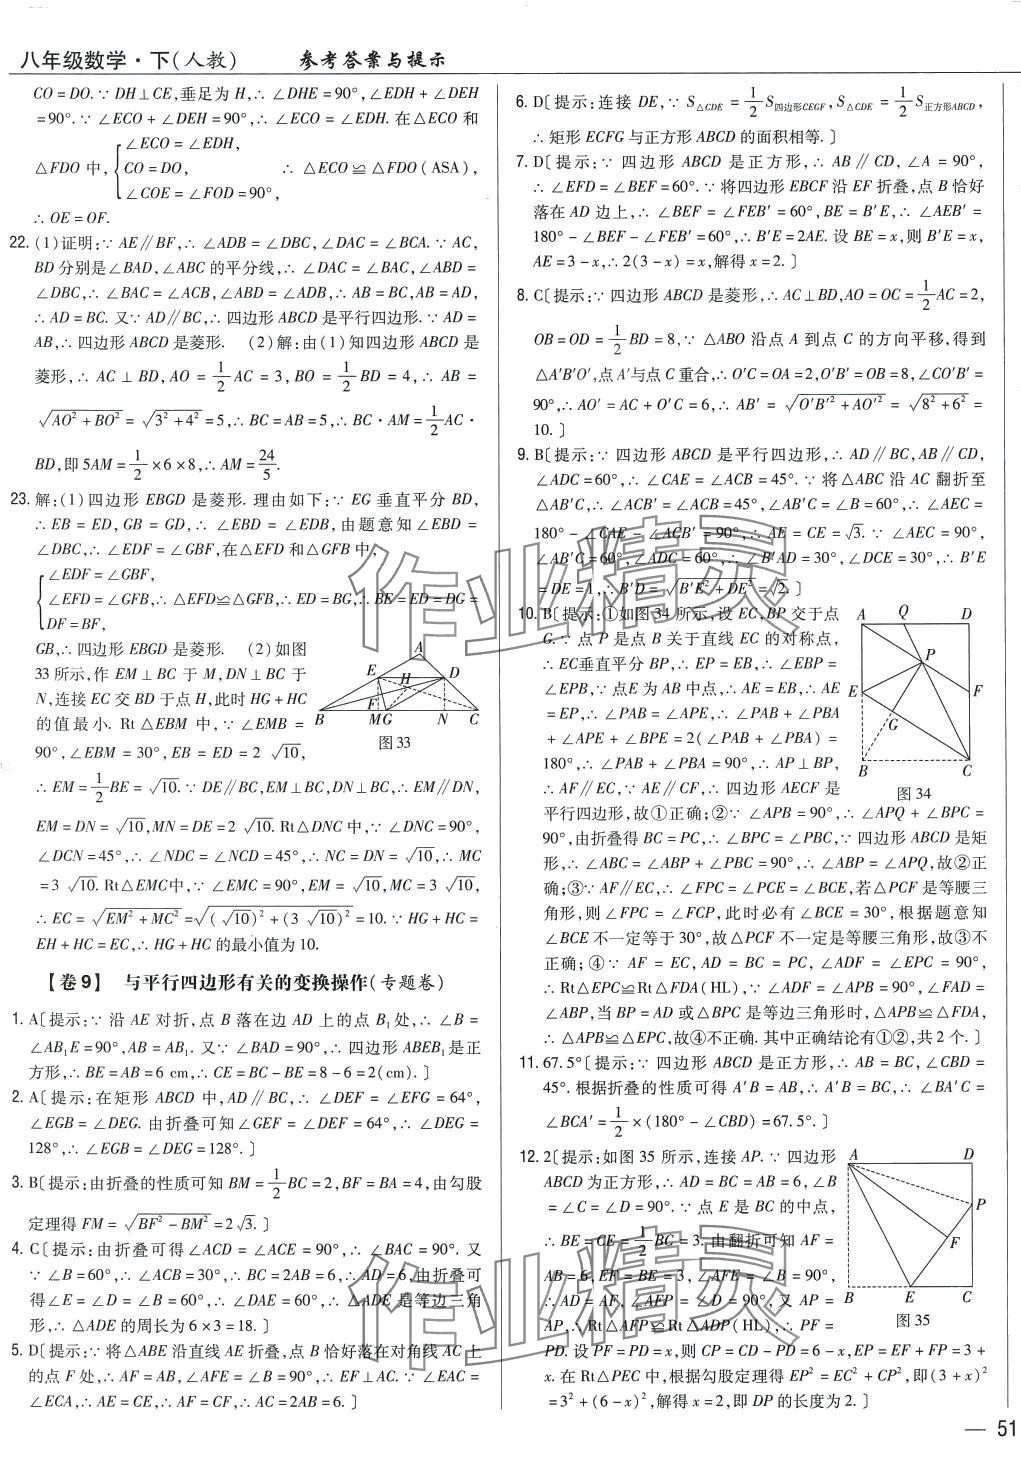 八年级数学·下(人教) 参考答案与提示
CO=DO.∵DH⊥CE,垂足为H,∴∠DHE=90°,∠EDH+∠DEH
=90°.∵∠ECO+∠DEH=90°,∴∠ECO=∠EDH.在△ECO和
∠ECO=∠EDH,
△FDO中,{CO=DO, ∴△ECO≌△FDO(ASA),
∠COE=∠FOD=90°,
∴OE=OF.
22.(1)证明:∵AE∥BF,∴∠ADB=∠DBC,∠DAC=∠BCA.∵AC,
BD分别是∠BAD,∠ABC的平分线,∴∠DAC=∠BAC,∠ABD=
∠DBC,∴∠BAC=∠ACB,∠ABD=∠ADB,∴AB=BC,AB=AD,
∴AD=BC.又∵AD∥BC,∴四边形ABCD是平行四边形.∵AD=
AB,∴四边形ABCD是菱形. (2)解:由(1)知四边形ABCD是
菱形,∴AC⊥BD,AO=1/2AC=3,BO=1/2BD=4,∴AB=
√(AO²+BO²)=√(3²+4²)=5,∴BC=AB=5,∴BC·AM=1/2AC·
BD,即5AM=1/2×6×8,∴AM=24/5.
23.解:(1)四边形EBGD是菱形.理由如下:∵EG垂直平分BD,
∴EB=ED,GB=GD,∴∠EBD=∠EDB,由题意知∠EBD=
∠DBC,∴∠EDF=∠GBF,在△EFD和△GFB中,
∠EDF=∠GBF,
{∠EFD=∠GFB,∴△EFD≌△GFB,∴ED=BG,∴BE=ED=DG=
DF=BF,
GB,∴四边形EBGD是菱形. (2)如图
33所示,作EM⊥BC于M,DN⊥BC于
N,连接EC交BD于点H,此时HG+HC
的值最小.Rt△EBM中,∵∠EMB=
90°,∠EBM=30°,EB=ED=2√10,
A
E
H
D
F
B
MG
N
C
图33
∴EM=1/2BE=√10.∵DE∥BC,EM⊥BC,DN⊥BC,∴EM∥DN,
EM=DN=√10,MN=DE=2√10.Rt△DNC中,∵∠DNC=90°,
∠DCN=45°,∴∠NDC=∠NCD=45°,∴NC=DN=√10,∴MC
=3√10.Rt△EMC中,∵∠EMC=90°,EM=√10,MC=3√10,
∴EC=√(EM²+MC²)=√((√10)²+(3√10)²)=10.∵HG+HC=
EH+HC=EC,∴HG+HC的最小值为10.
【卷9】 与平行四边形有关的变换操作(专题卷)
1. A〔提示:∵沿AE对折,点B落在边AD上的点B₁处,∴∠B=
∠AB₁E=90°,AB=AB₁.又∵∠BAD=90°,∴四边形ABEB₁是正
方形,∴BE=AB=6 cm,∴CE=BC-BE=8-6=2(cm).〕
2. A〔提示:在矩形ABCD中,AD∥BC,∴∠DEF=∠EFG=64°,
∠EGB=∠DEG.由折叠可知∠GEF=∠DEF=64°,∴∠DEG=
128°,∴∠EGB=∠DEG=128°.〕
3. B〔提示:由折叠的性质可知BM=1/2BC=2,BF=BA=4,由勾股
定理得FM=√(BF²-BM²)=2√3.〕
4. C〔提示:由折叠可得∠ACD=∠ACE=90°,∴∠BAC=90°.又
∵∠B=60°,∴∠ACB=30°,∴BC=2AB=6,∴AD=6,由折叠可
得∠E=∠D=∠B=60°,∴∠DAE=60°,∴△ADE是等边三角
形,∴△ADE的周长为6×3=18.〕
5. D〔提示:∵将△ABE沿直线AE折叠,点B恰好落在对角线AC上
的点F处,∴AF=AB,∠AFE=∠B=90°,∴EF⊥AC.∵∠EAC=
∠ECA,∴AE=CE,∴AF=CF,∴AC=2AB=6.〕
6. D〔提示:连接DE,∵S△CDE=1/2S四边形CEGF,S△CDE=1/2S正方形ABCD,
∴矩形ECFG与正方形ABCD的面积相等.〕
7. D〔提示:∵四边形ABCD是正方形,∴AB∥CD,∠A=90°,
∴∠EFD=∠BEF=60°.∵将四边形EBCF沿EF折叠,点B恰好
落在AD边上,∴∠BEF=∠FEB′=60°,BE=B′E,∴∠AEB′=
180°-∠BEF-∠FEB′=60°,∴B′E=2AE.设BE=x,则B′E=x,
AE=3-x,∴2(3-x)=x,解得x=2.〕
8. C〔提示:∵四边形ABCD是菱形,∴AC⊥BD,AO=OC=1/2AC=2,
OB=OD=1/2BD=8,∵△ABO沿点A到点C的方向平移,得到
△A′B′O′,点A′与点C重合,∴O′C=OA=2,O′B′=OB=8,∠CO′B′=
90°,∴AO′=AC+O′C=6,∴AB′=√(O′B′²+AO′²)=√(8²+6²)=
10.〕
9. B〔提示:∵四边形ABCD是平行四边形,∴AD∥BC,AB∥CD,
∠ADC=60°,∴∠CAE=∠ACB=45°.∵将△ABC沿AC翻折至
△AB′C,∴∠ACB′=∠ACB=45°,∠AB′C=∠B=60°,∴∠AEC=
180°-∠CAE-∠ACB′=90°,∴AE=CE=√3.∵∠AEC=90°,
∠AB′C=60°,∠ADC=60°,∴∠B′AD=30°,∠DCE=30°,∴B′E
=DE=1,∴B′D=√(B′E²+DE²)=√2.〕
10. B〔提示:①如图34所示,设EC,BP交于点
G.∵点P是点B关于直线EC的对称点,
∴EC垂直平分BP,∴EP=EB,∴∠EBP=
∠EPB,∵点E为AB中点,∴AE=EB,∴AE
=EP,∴∠PAB=∠APE,∴∠PAB+∠PBA
+∠APE+∠BPE=2(∠PAB+∠PBA)=
180°,∴∠PAB+∠PBA=90°,∴AP⊥BP,
∴AF∥EC,∵AE∥CF,∴四边形AECF是
A
Q
D
P
E
F
G
B
C
图34
平行四边形,故①正确;②∵∠APB=90°,∴∠APQ+∠BPC=
90°,由折叠得BC=PC,∴∠BPC=∠PBC,∵四边形ABCD是矩
形,∴∠ABC=∠ABP+∠PBC=90°,∴∠ABP=∠APQ,故②正
确;③∵AF∥EC,∴∠FPC=∠PCE=∠BCE,若△PCF是等腰三
角形,则∠FPC=∠FCP,此时必有∠BCE=30°,根据题意知
∠BCE不一定等于30°,故△PCF不一定是等腰三角形,故③不
正确;④∵AF=EC,AD=BC=PC,∠ADF=∠EPC=90°,
∴Rt△EPC≌Rt△FDA(HL),∵∠ADF=∠APB=90°,∠FAD=
∠ABP,当BP=AD或△BPC是等边三角形时,△APB≌△FDA,
∴△APB≌△EPC,故④不正确.其中正确结论有①②,共2个.〕
11. 67.5°〔提示:∵四边形ABCD是正方形,∴AB=BC,∠CBD=
45°.根据折叠的性质可得A′B=AB,∴A′B=BC,∴∠BA′C=
∠BCA′=1/2×(180°-∠CBD)=67.5°.〕
12. 2〔提示:如图35所示,连接AP.∵四边形
ABCD为正方形,∴AD=BC=AB=6,∠B
=∠C=∠D=90°.∵点E是BC的中点,
∴BE=CE=1/2BC=3.由翻折可知AF=
AB=6,EF=BE=3,∠AFE=∠B=90°,
∴AD=AF,∠AFP=∠D=90°,又AP=
AP,∴Rt△AFP≌Rt△ADP(HL),∴PF=
PD.设PF=PD=x,则CP=CD-PD=6-x,EP=EF+FP=3+
A
D
P
F
B
E
C
图35
x.在Rt△PEC中,根据勾股定理得EP²=EC²+CP²,即(3+x)²
=3²+(6-x)²,解得x=2,即DP的长度为2.〕
作业精灵
作业精灵
— 51